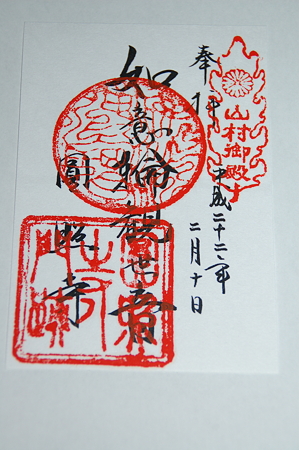 山村御殿
奉拝
平成二十二年
二月十日
如意輪観世音
圓照寺